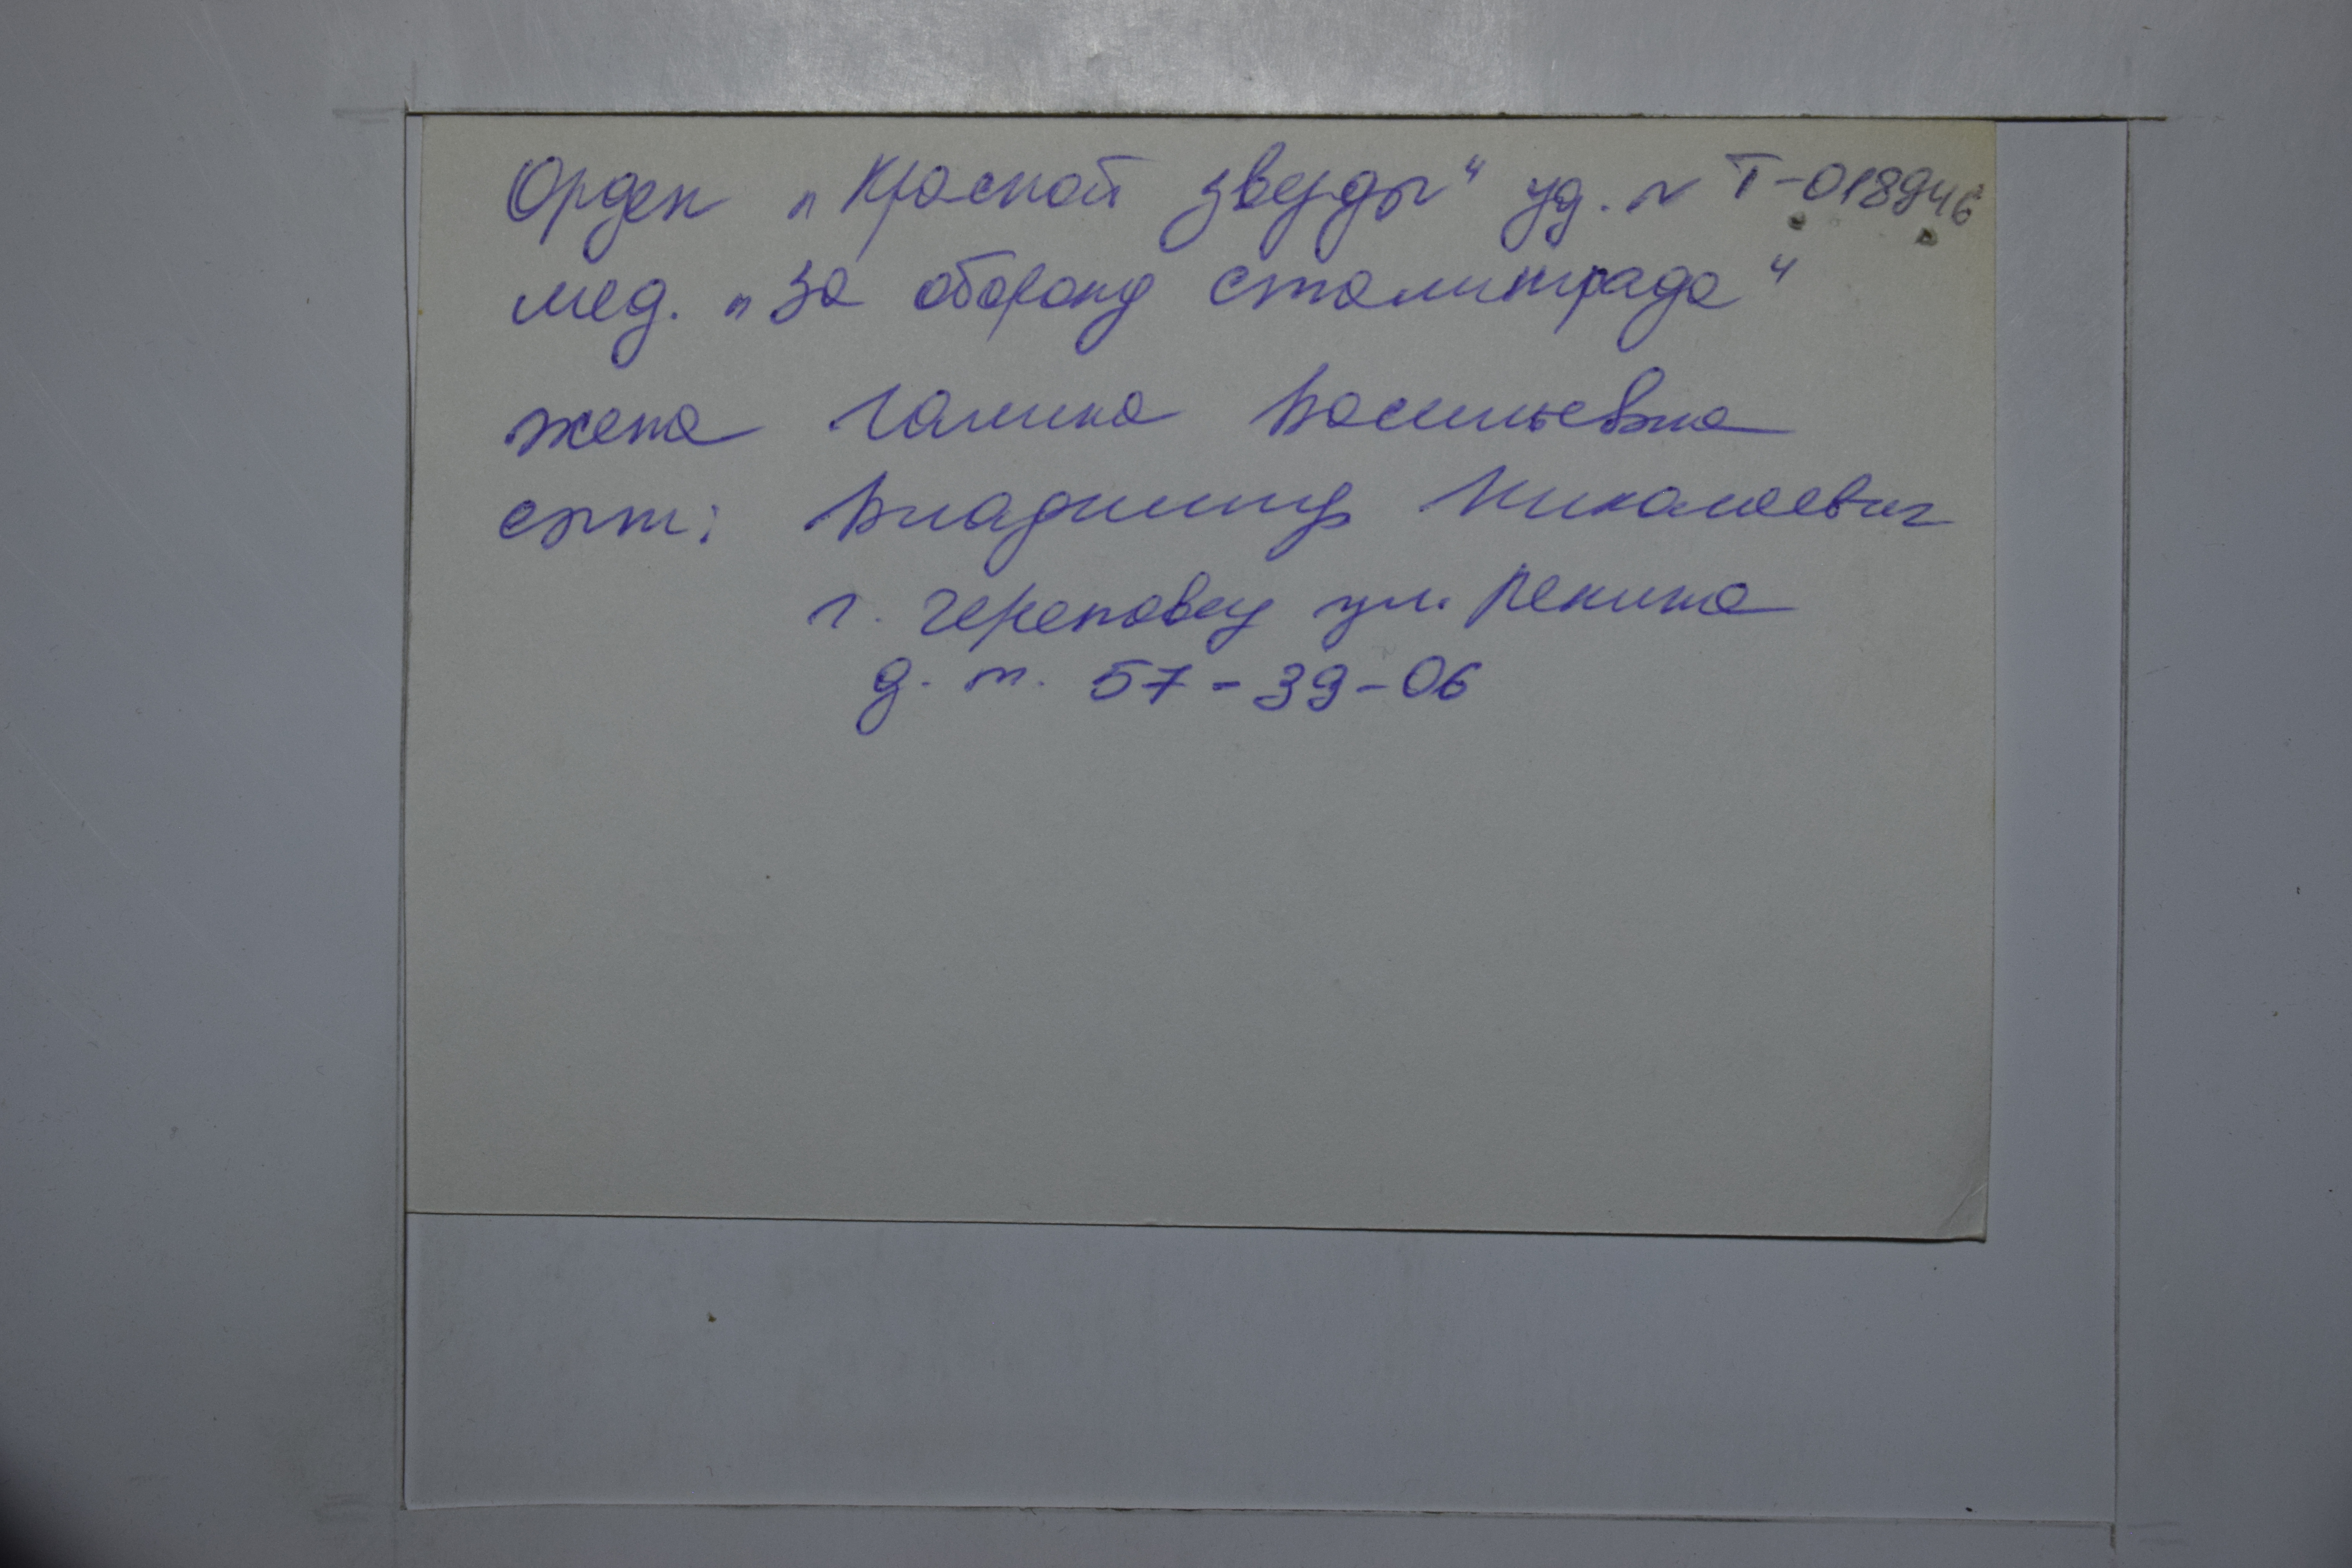 Орден „Красной звезды" уд. № Т-018946
мед. „За оборону Сталинграда"
жена Галина Васильевна
сын: Владимир Николаевич
г. Череповец ул. Ленина
д. т. 57-39-06